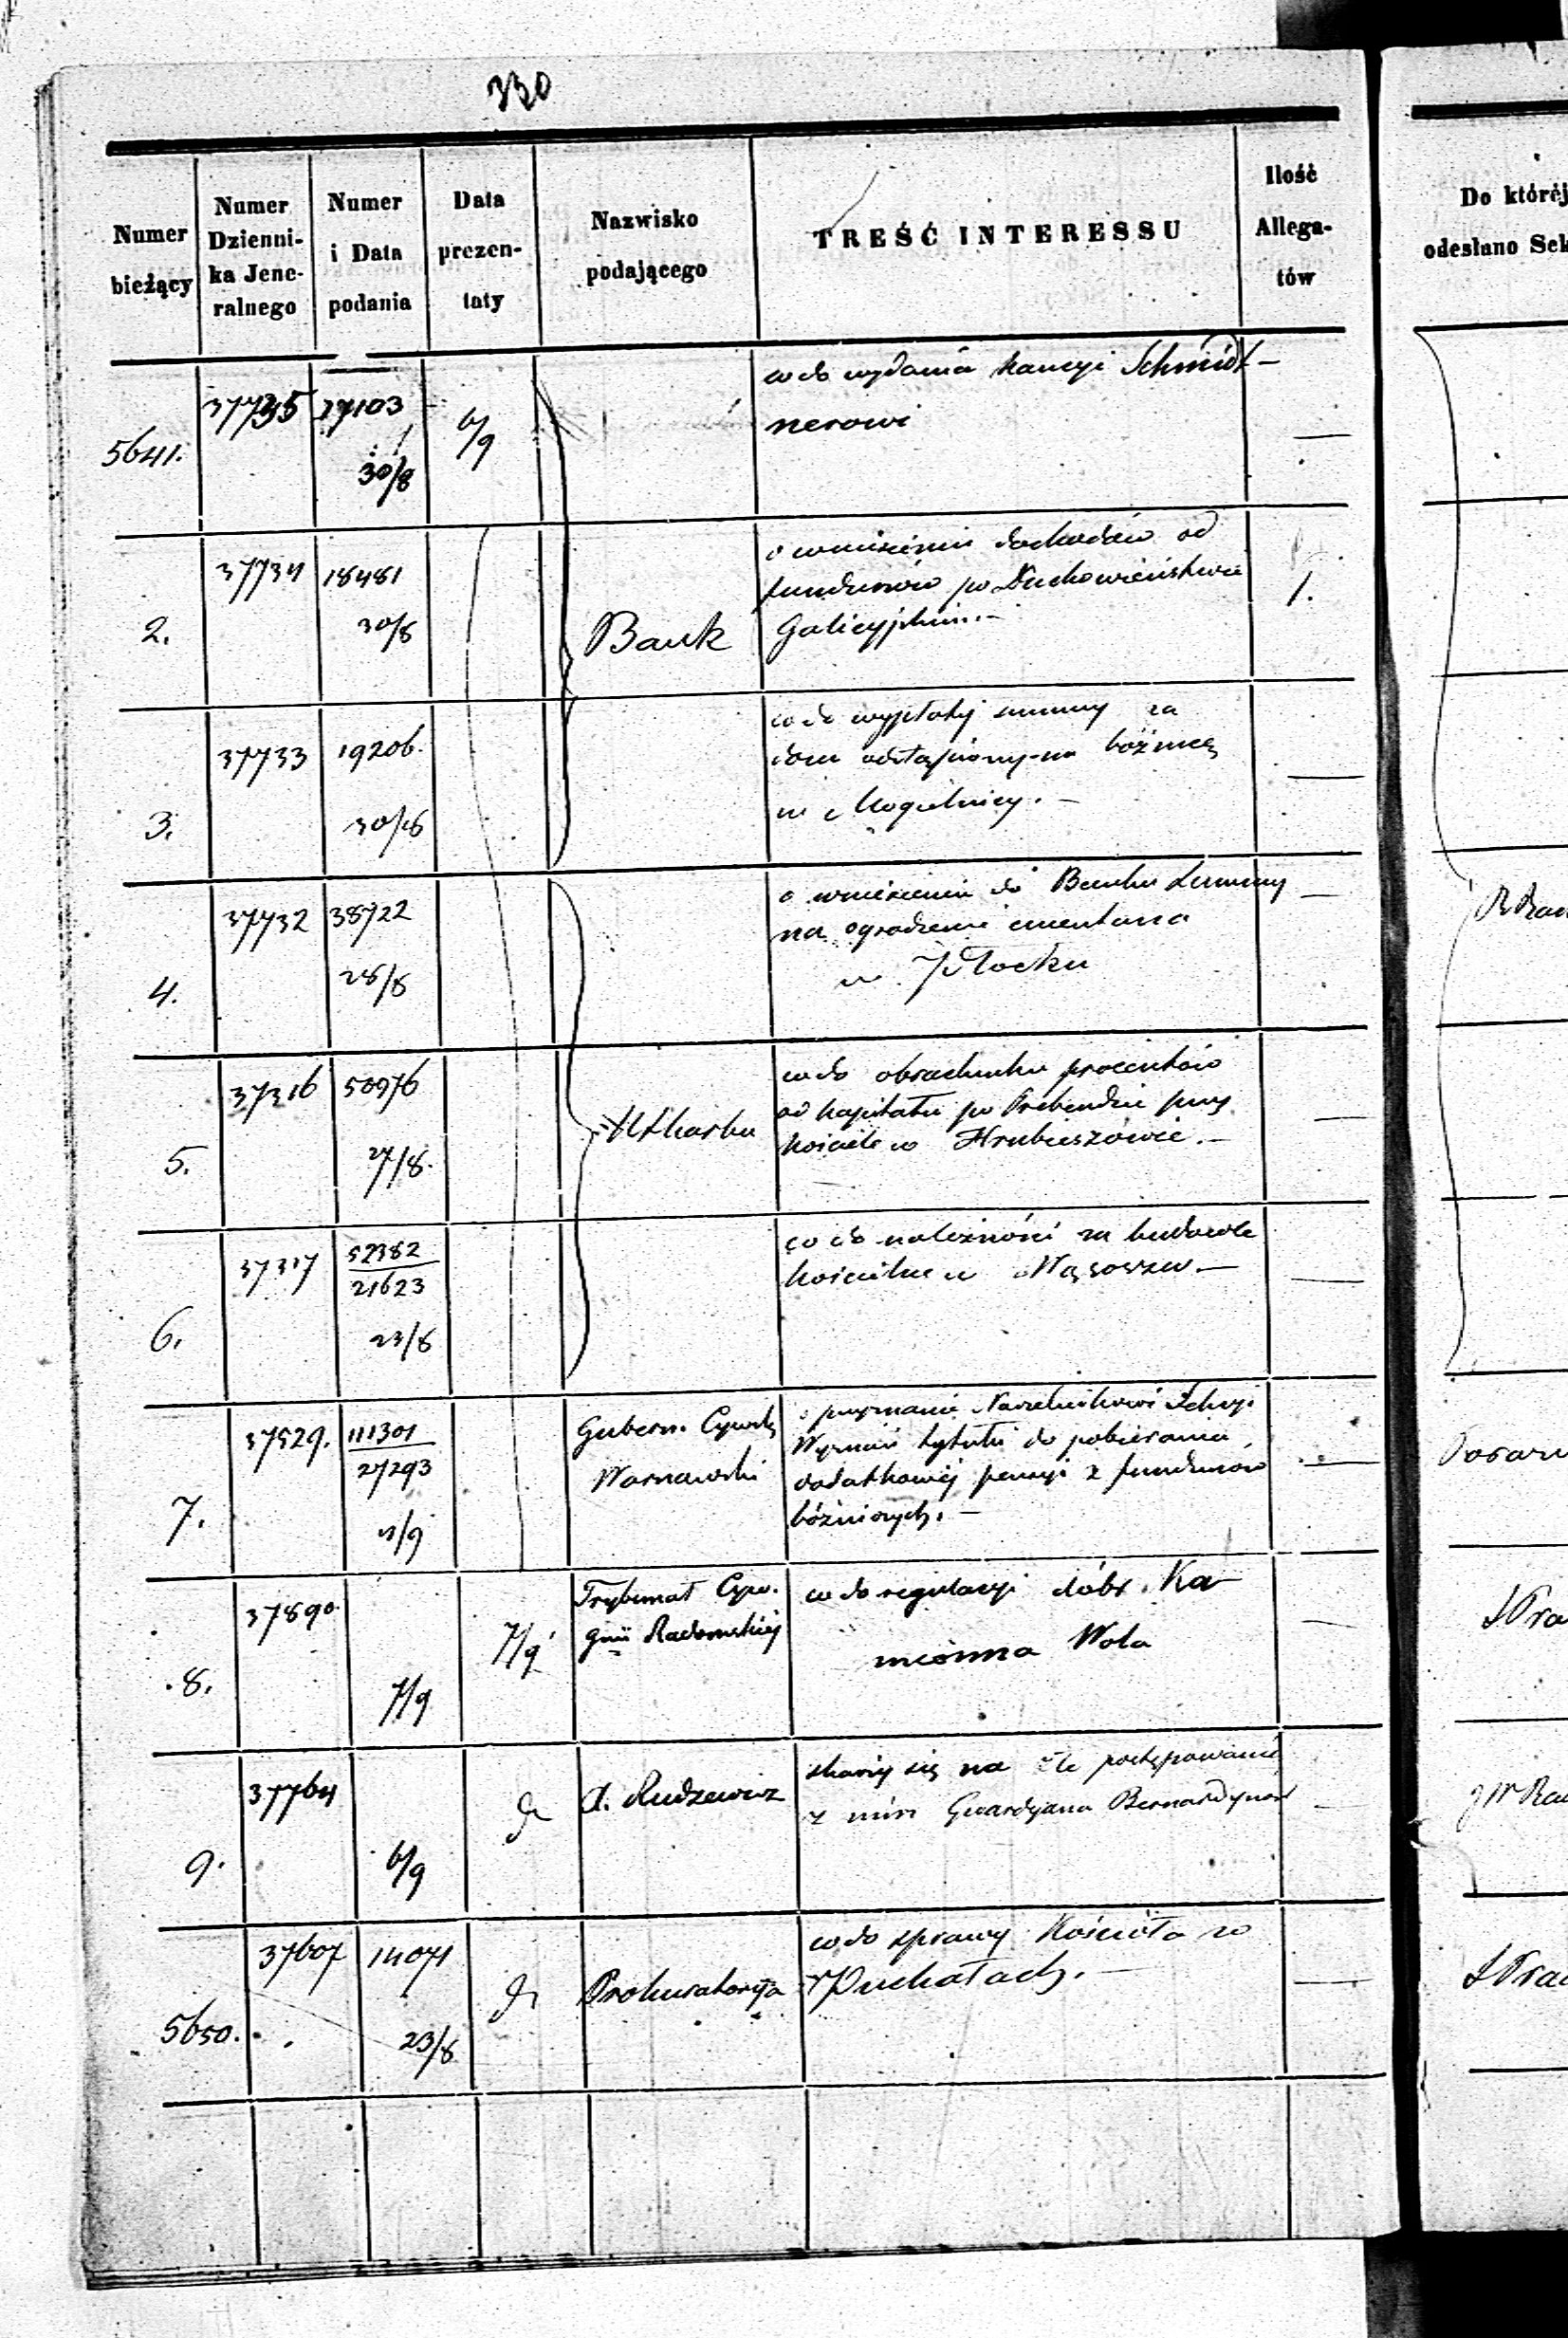 330
Numer bieżący
Numer Dzienni-
ka Jene-
ralnego
Numer
i Data
podania
Data
prezen-
taty
Nazwisko
podającego
TREŚĆ INTERESSU
Ilość
Allega-
tów
Do której
odesłano Sek
5641.
37735
17103
30/8
6/9
co do wydania kaucyi Schmidt-
nerowi
—
2.
37734
18481
30/8
Bank
o wniesieniu dochodów od
funduszów po Duchowieństwie
Galicyjskim.—
1.
3.
37733
19206.
30/8
co do wypłaty summy za
dom odstąpiony na bóżnicę
w Mogielnicy.—
—
4.
37732
38722
28/8
o wniesieniu do Banku Summy
na ogrodzenie cmentarza
w Płocku
—
5.
37316
50976
27/8.
co do obrachunku procentów
od kapitału po Prebendzie przy
kościele w Hrubieszowie.—
—
6.
37317
52382
21623
23/8
co do należności za budowle
kościelne w Wąsoszu.—
—
7.
37529.
111301
27293
4/9
Gubern. Cywilny
Warszawski
o przyznanie Naczelnikowi Sekcyi
Wyznań tytułu do pobierania
dodatkowej pensyi z funduszów
bóżniczych.—
—
8.
37890.
7/9
7/9
Trybunał Cyw.
Gnii Radomskiej
co do regulacyi dóbr Ka-
mionna Wola
—
9.
37764
6/9
A. Rudzewicz
skarży się na złe postępowanie
z nim Gwardyana Bernardynów
—
5650.
37607
14071
23/8
Prokuratorya
co do sprawy Kościoła w
Puchałach.—
—